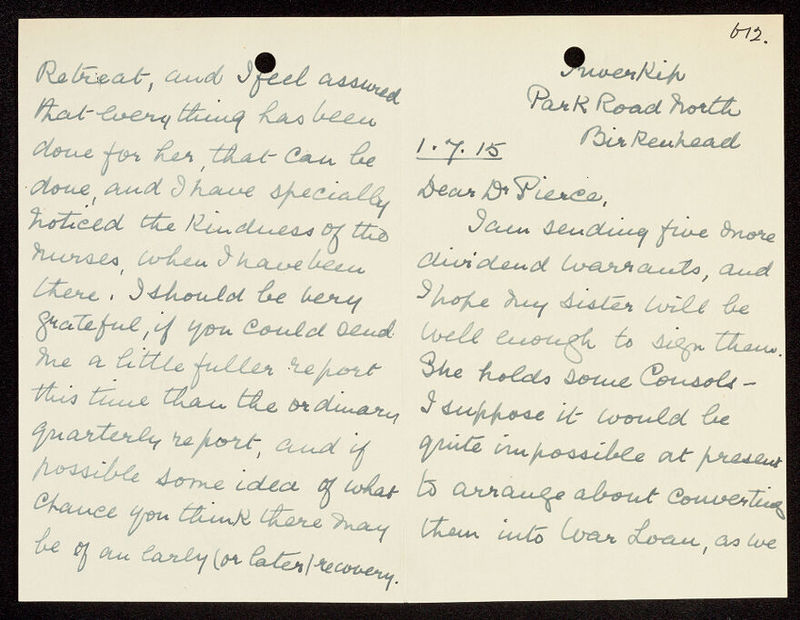 612.
Inverkip
Park Road North
Birkenhead
1.7.15
Dear Dr Pierce,
I am sending five more
dividend warrants, and
I hope my sister will be
well enough to sign them.
She holds some Consols –
I suppose it would be
quite impossible at present
to arrange about converting
them into War Loan, as we
Retreat, and I feel assured
that everything has been
done for her, that can be
done, and I have specially
noticed the kindness of the
nurses, when I have been
there. I should be very
grateful, if you could send
me a little fuller report
this time than the ordinary
quarterly report, and if
possible some idea of what
chance you think there may
be of an early (or later) recovery.